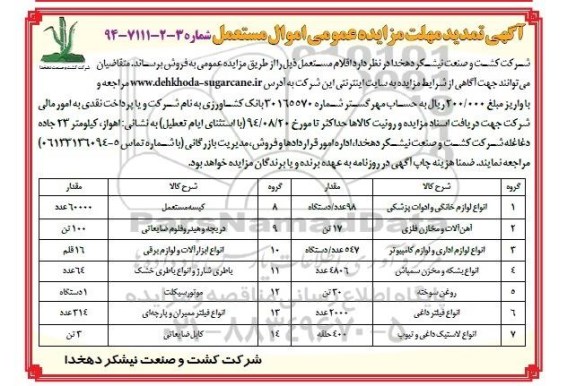 آگهی تمدید مهلت مزایده عمومی اموال مستعمل شماره ۳-۲-۷۱۱۱-۹۴
شرکت کشت و صنعت نیشکر دهخدا در نظر دارد اقلام مستعمل ذیل را از طریق مزایده عمومی به فروش برساند. متقاضیان
می توانند جهت آگاهی از شرایط مزایده به سایت اینترنتی این شرکت به آدرس www.dehkhoda-sugarcane.ir مراجعه و
با واریز مبلغ ۲۰۰/۰۰۰ ریال به حساب مهر گستر شماره ۳۰۱۶۵۵۷۰ بانک کشاورزی به نام شرکت و یا پرداخت نقدی به امور مالی
شرکت جهت دریافت اسناد مزایده و رونیت کالاها حداکثر تا مورخ ۹۴/۰۸/۲۰ (با استثنای ایام تعطیل) به نشانی: اهواز، کیلومتر ۲۳ جاده
دغاغله شرکت کشت و صنعت نیشکر دهخدا، اداره امور قراردادها و فروش، مدیریت بازرگانی (با شماره تماس ۵-۰۶۱۳۳۱۳۶۰۹۴)
مراجعه نمایند. ضمنا هزینه چاپ آگهی در روزنامه به عهده برنده و یا برندگان مزایده خواهد بود.
گروه شرح کالا مقدار گروه شرح کالا مقدار
۱ انواع لوازم خانگی و ادوات پزشکی ۹۸ عدد/دستگاه ۸ کیسه مستعمل ۶۰۰۰۰ عدد
۲ آهن آلات و مخازن فلزی ۱۷ تن ۹ دریچه و هیدروفلوم ضایعاتی ۱۰۰ تن
۳ انواع لوازم اداری و لوازم کامپیوتر ۵۴۷ عدد/دستگاه ۱۰ انواع ابزارآلات و لوازم برقی ۱۶ قلم
۴ انواع بشکه و مخزن سمپاش ۴۸۰۶ عدد ۱۱ باطری شارژ و انواع باطری خشک ۶۴ عدد
۵ روغن سوخته ۳۰ تن ۱۲ موتورسیکلت ۱ دستگاه
۶ انواع فیلتر داغی ۲۰۰۰ عدد ۱۳ انواع فیلتر ممبران و پارچه ای ۳۱۴ عدد
۷ انواع لاستیک داغی و تیوپ ۴۰۰ حلقه ۱۴ کابل ضایعاتی ۳ تن
شرکت کشت و صنعت نیشکر دهخدا